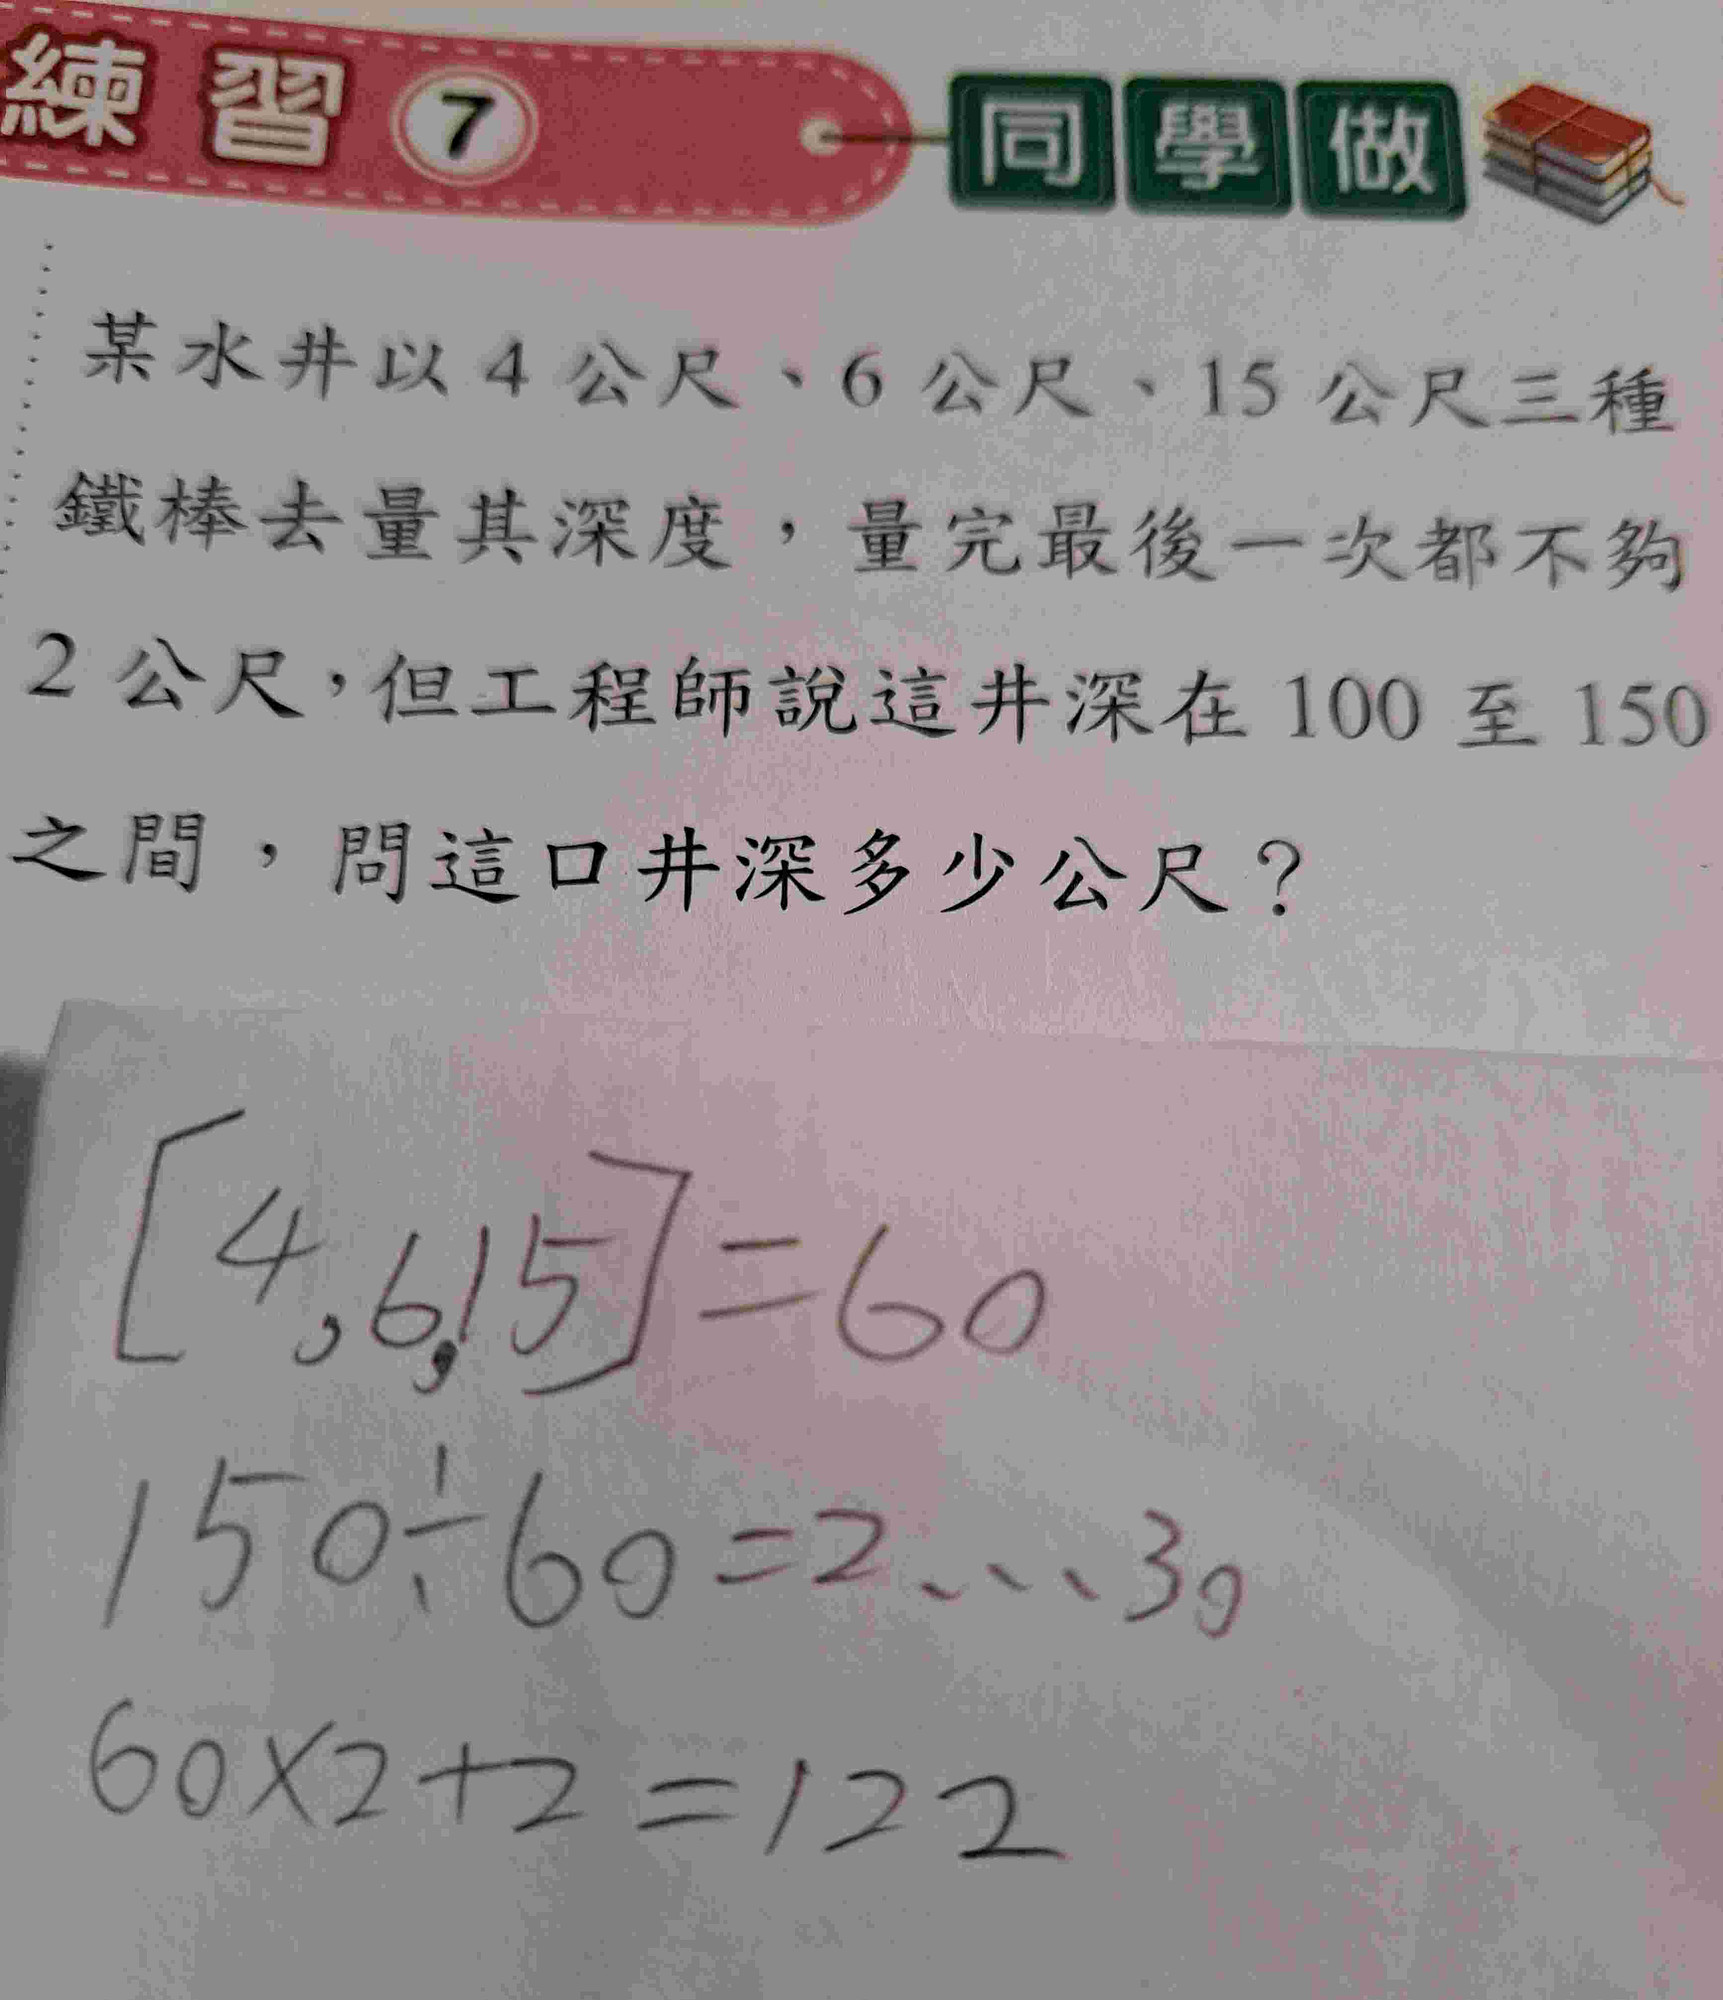 練習 7 同學做
某水井以 4 公尺、6 公尺、15 公尺三種
鐵棒去量其深度，量完最後一次都不夠
2 公尺，但工程師說這井深在 100 至 150
之間，問這口井深多少公尺？
[4,6,15]=60
150÷60=2...30
60×2+2=122